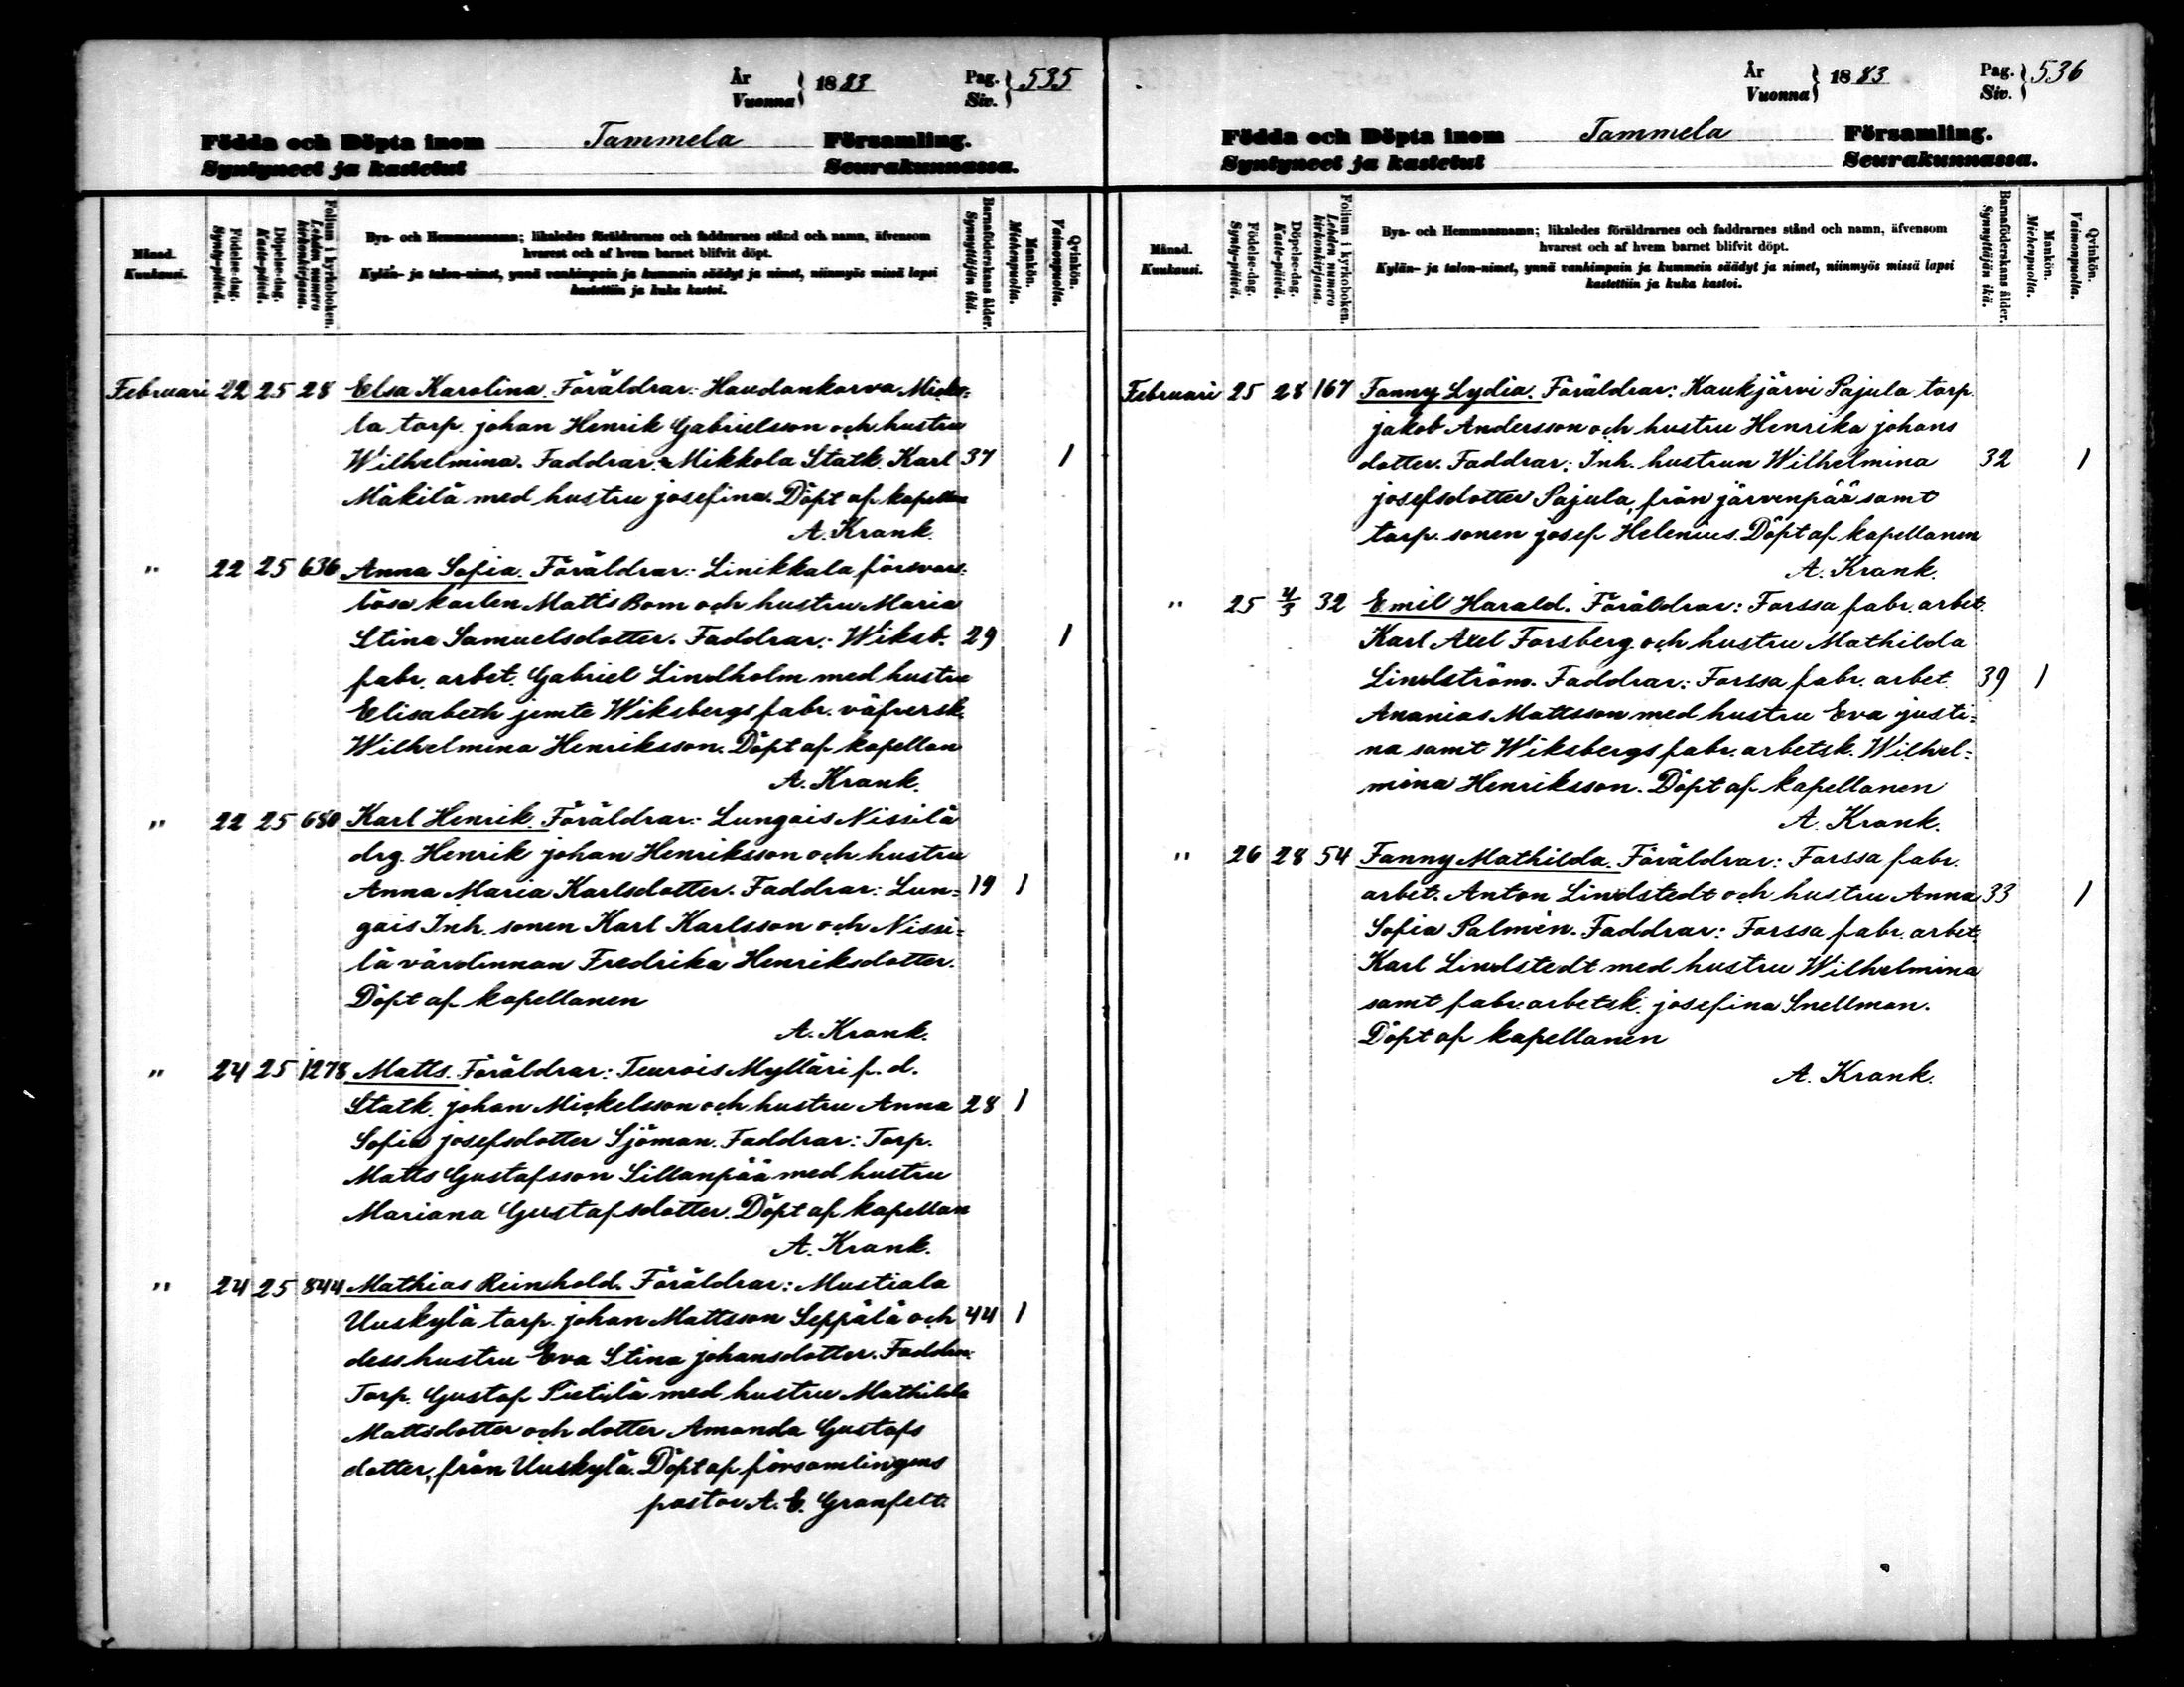 År
Vuonna } 1883 Pag.
Siv. } 535
Födda och Döpta inom Tammela Församling.
Syntyneet ja kastetut Seurakunnassa.
Månad.
Kuukausi.
Födelse-dag.
Synty-päivä.
Döpelse-dag.
Kaste-päivä.
Folium i kyrkoboken.
Lehden numero
kirkonkirjassa.
Bya- och Hemmansnamn; likaledes föräldrarnes och faddrarnes stånd och namn, äfvensom
hvarest och af hvem barnet blifvit döpt.
Kylän- ja talon-nimet, ynnä vanhimpain ja kummein säädyt ja nimet, niinmyös missä lapsi
kastettiin ja kuka kastoi.
Barnaföderskans ålder.
Synnyttäjän ikä.
Mankön.
Miehenpuolta.
Qvinkön.
Vaimonpuolta.
Februari 22 25 28 Elsa Karolina. Föräldrar: Haudankorva Micko-
la torp. johan Henrik Gabrielsson och hustru
Wilhelmina. Faddrar: Mikkola Statk. Karl 37 1
Mäkilä med hustru josefina. Döpt af kapellan
A. Krank.
" 22 25 636 Anna Sofia. Föräldrar: Linikkala försvars-
lösa karlen Matts Bom och hustru Maria
Stina Samuelsdotter. Faddrar: Wiksb. 29 1
fabr. arbet. Gabriel Lindholm med hustru
Elisabeth jemte Wiksbergs fabr. väfversk.
Wilhelmina Henriksson. Döpt af kapellan
A. Krank.
" 22 25 680 Karl Henrik. Föräldrar: Lungois Nissilä
drg. Henrik johan Henriksson och hustru
Anna Maria Karlsdotter. Faddrar: Lun= 19 1
gois Inh. sonen Karl Karlsson och Nissi=
lä värdinnan Fredrika Henriksdotter.
Döpt af kapellanen
A. Krank.
" 24 25 1278 Matts. Föräldrar: Teurois Mylläri f. d.
Statk. johan Mickelsson och hustru Anna 28 1
Sofia josefsdotter Sjöman. Faddrar: Torp.
Matts Gustafsson Sillanpää med hustru
Mariana Gustafsdotter. Döpt af kapellan
A. Krank.
" 24 25 844 Mathias Reinhold. Föräldrar: Mustiala
Uuskylä torp. johan Mattsson Seppälä och 44 1
dess hustru Eva Stina johansdotter. Faddra:
Torp. Gustaf Pietilä med hustru Mathilda
Mattsdotter och dotter Amanda Gustafs
dotter, från Uuskylä. Döpt af församlingens
pastor A. E. Granfelt.
År
Vuonna } 1883 Pag.
Siv. } 536
Födda och Döpta inom Tammela Församling.
Syntyneet ja kastetut Seurakunnassa.
Månad.
Kuukausi.
Födelse-dag.
Synty-päivä.
Döpelse-dag.
Kaste-päivä.
Folium i kyrkoboken.
Lehden numero
kirkonkirjassa.
Bya- och Hemmansnamn; likaledes föräldrarnes och faddrarnes stånd och namn, äfvensom
hvarest och af hvem barnet blifvit döpt.
Kylän- ja talon-nimet, ynnä vanhimpain ja kummein säädyt ja nimet, niinmyös missä lapsi
kastettiin ja kuka kastoi.
Barnaföderskans ålder.
Synnyttäjän ikä.
Mankön.
Miehenpuolta.
Qvinkön.
Vaimonpuolta.
Februari 25 28 167 Fanny Lydia. Föräldrar: Kaukjärvi Pajula torp.
jakob Andersson och hustru Henrika johans
dotter. Faddrar: Inh. hustrun Wilhelmina 32 1
josefsdotter Pajula, från järvenpää samt
torp. sonen josef Helenius. Döpt af kapellanen
A. Krank.
" 25 4/3 32 Emil Harald. Föräldrar: Forssa fabr. arbet.
Karl Axel Forsberg och hustru Mathilda
Lindström. Faddrar: Forssa fabr. arbet. 39 1
Ananias Mattsson med hustru Eva justi=
na samt Wiksbergs fabr. arbetsk. Wilhel=
mina Henriksson. Döpt af kapellanen
A. Krank.
" 26 28 54 Fanny Mathilda. Föräldrar: Forssa fabr.
arbet. Anton Lindstedt och hustru Anna 33 1
Sofia Palmén. Faddrar: Forssa fabr. arbet.
Karl Lindstedt med hustru Wilhelmina
samt fabr. arbetsk. josefina Snellman.
Döpt af kapellanen
A. Krank.